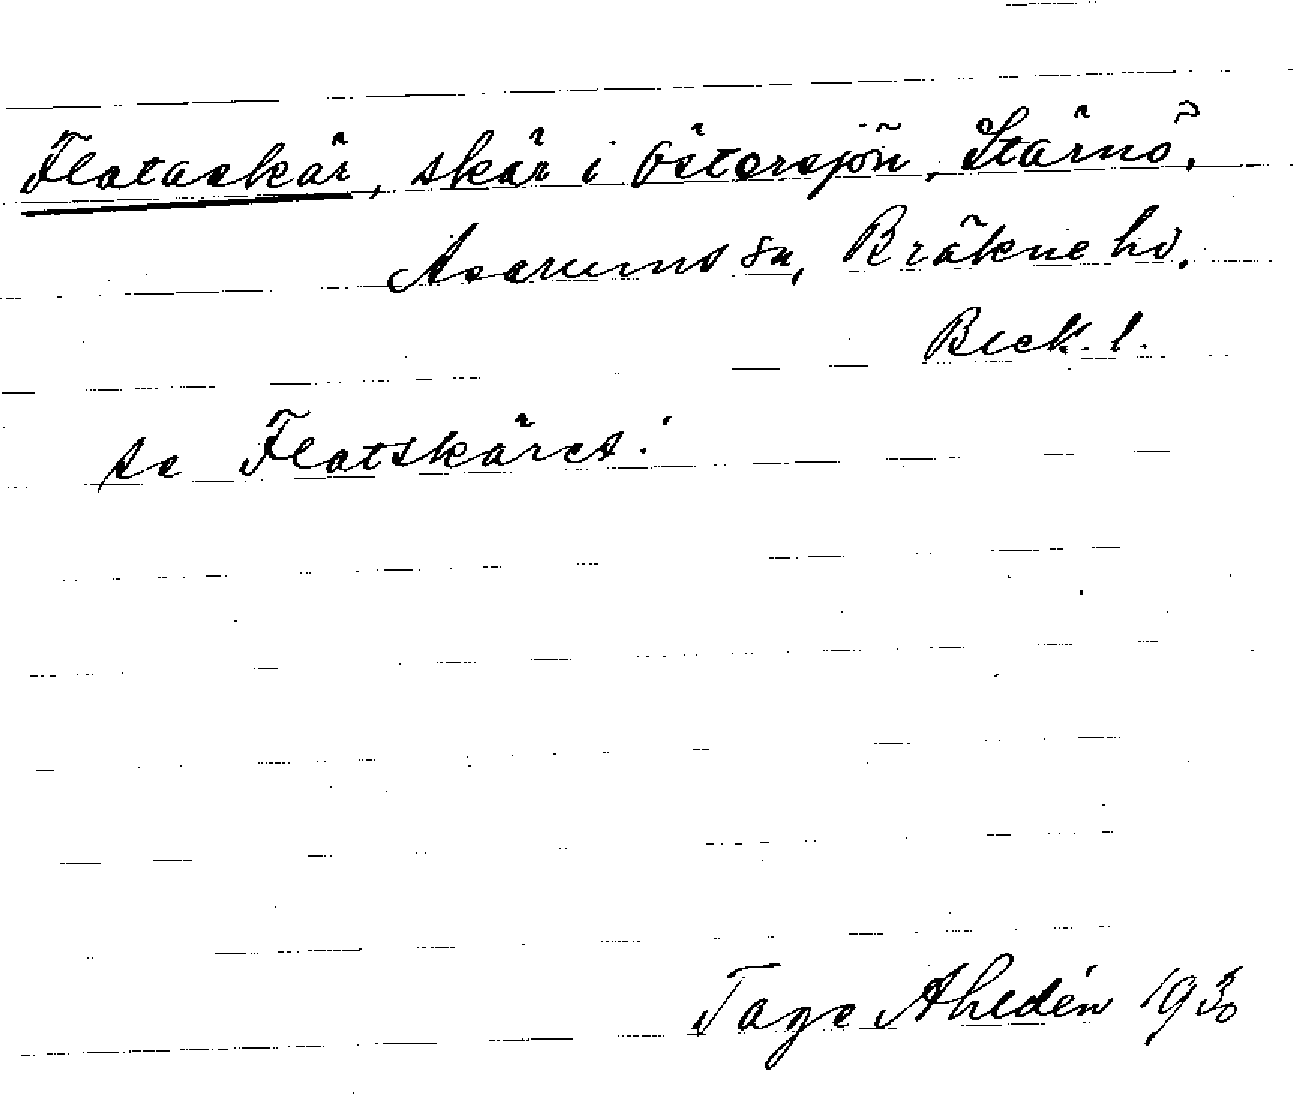 Flataskär, skär i Östersjön, Stärnö,
Asarums sn, Bräkne hd.
Blek. l.
se Flatskäret!
Tage Ahldén 1930